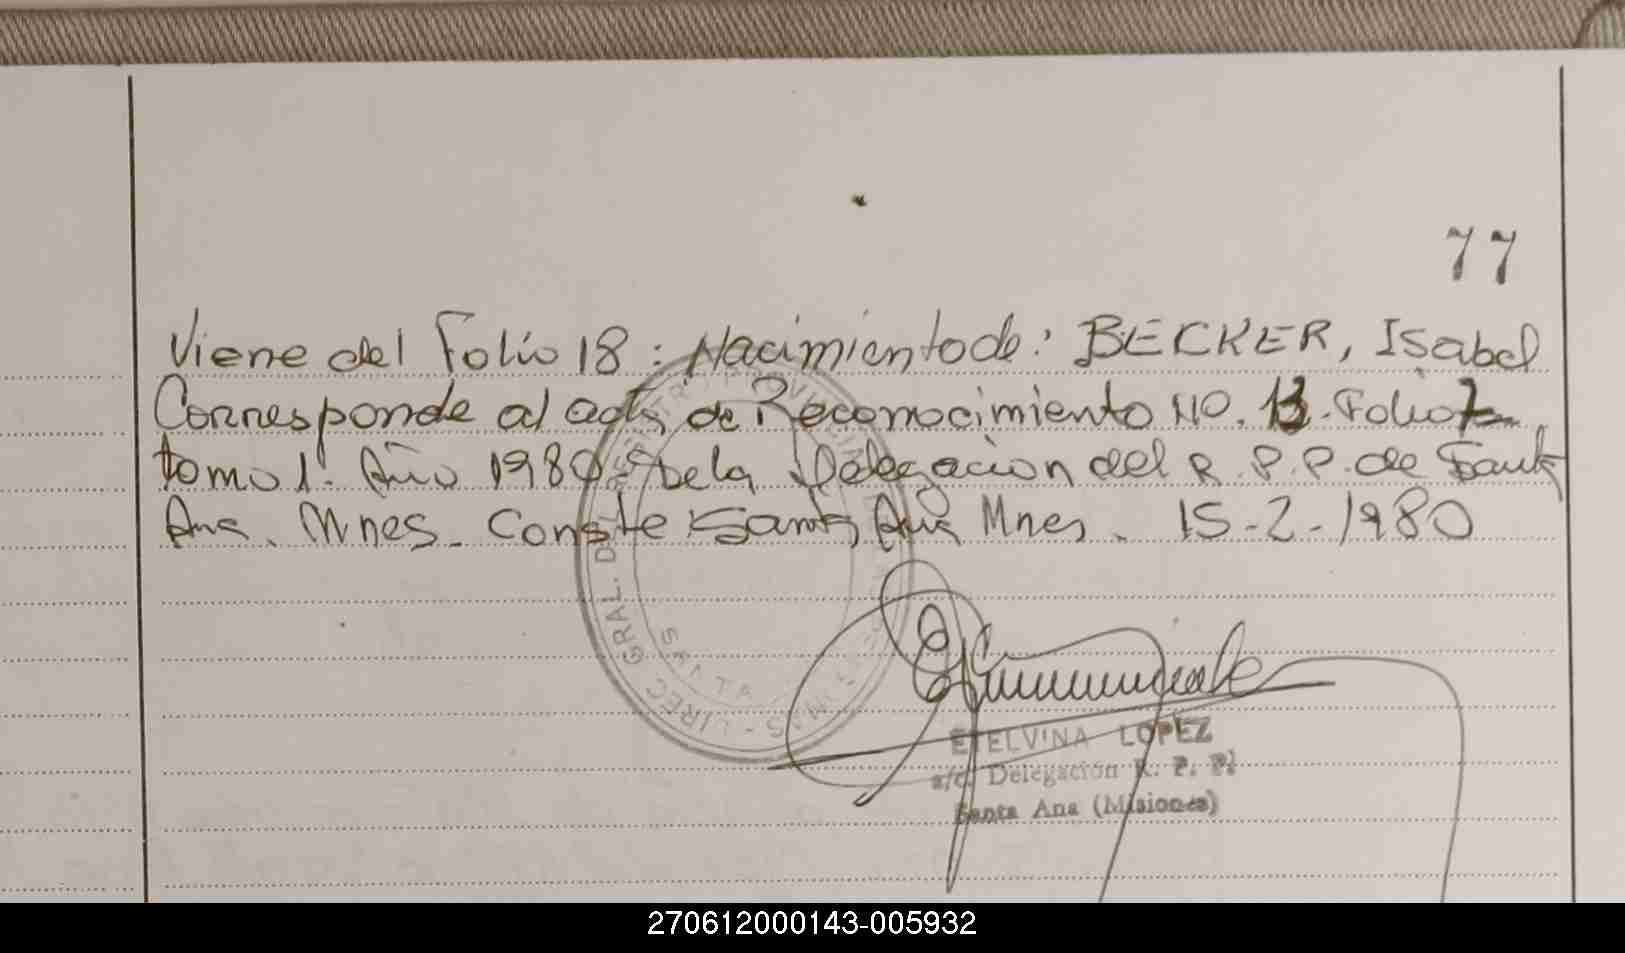 77
Viene del Folio 18: Nacimiento de: BECKER, Isabel
Corresponde al acta de Reconocimiento No. 13. Folio 7
tomo 1º. Año 1980 de la Delegación del R.P.P. de Santa
Ana. Mnes. Conste Santa Ana Mnes. 15-2-1980
ETELVINA LOPEZ
a/c. Delegación R. P. P.
Santa Ana (Misiones)
270612000143-005932